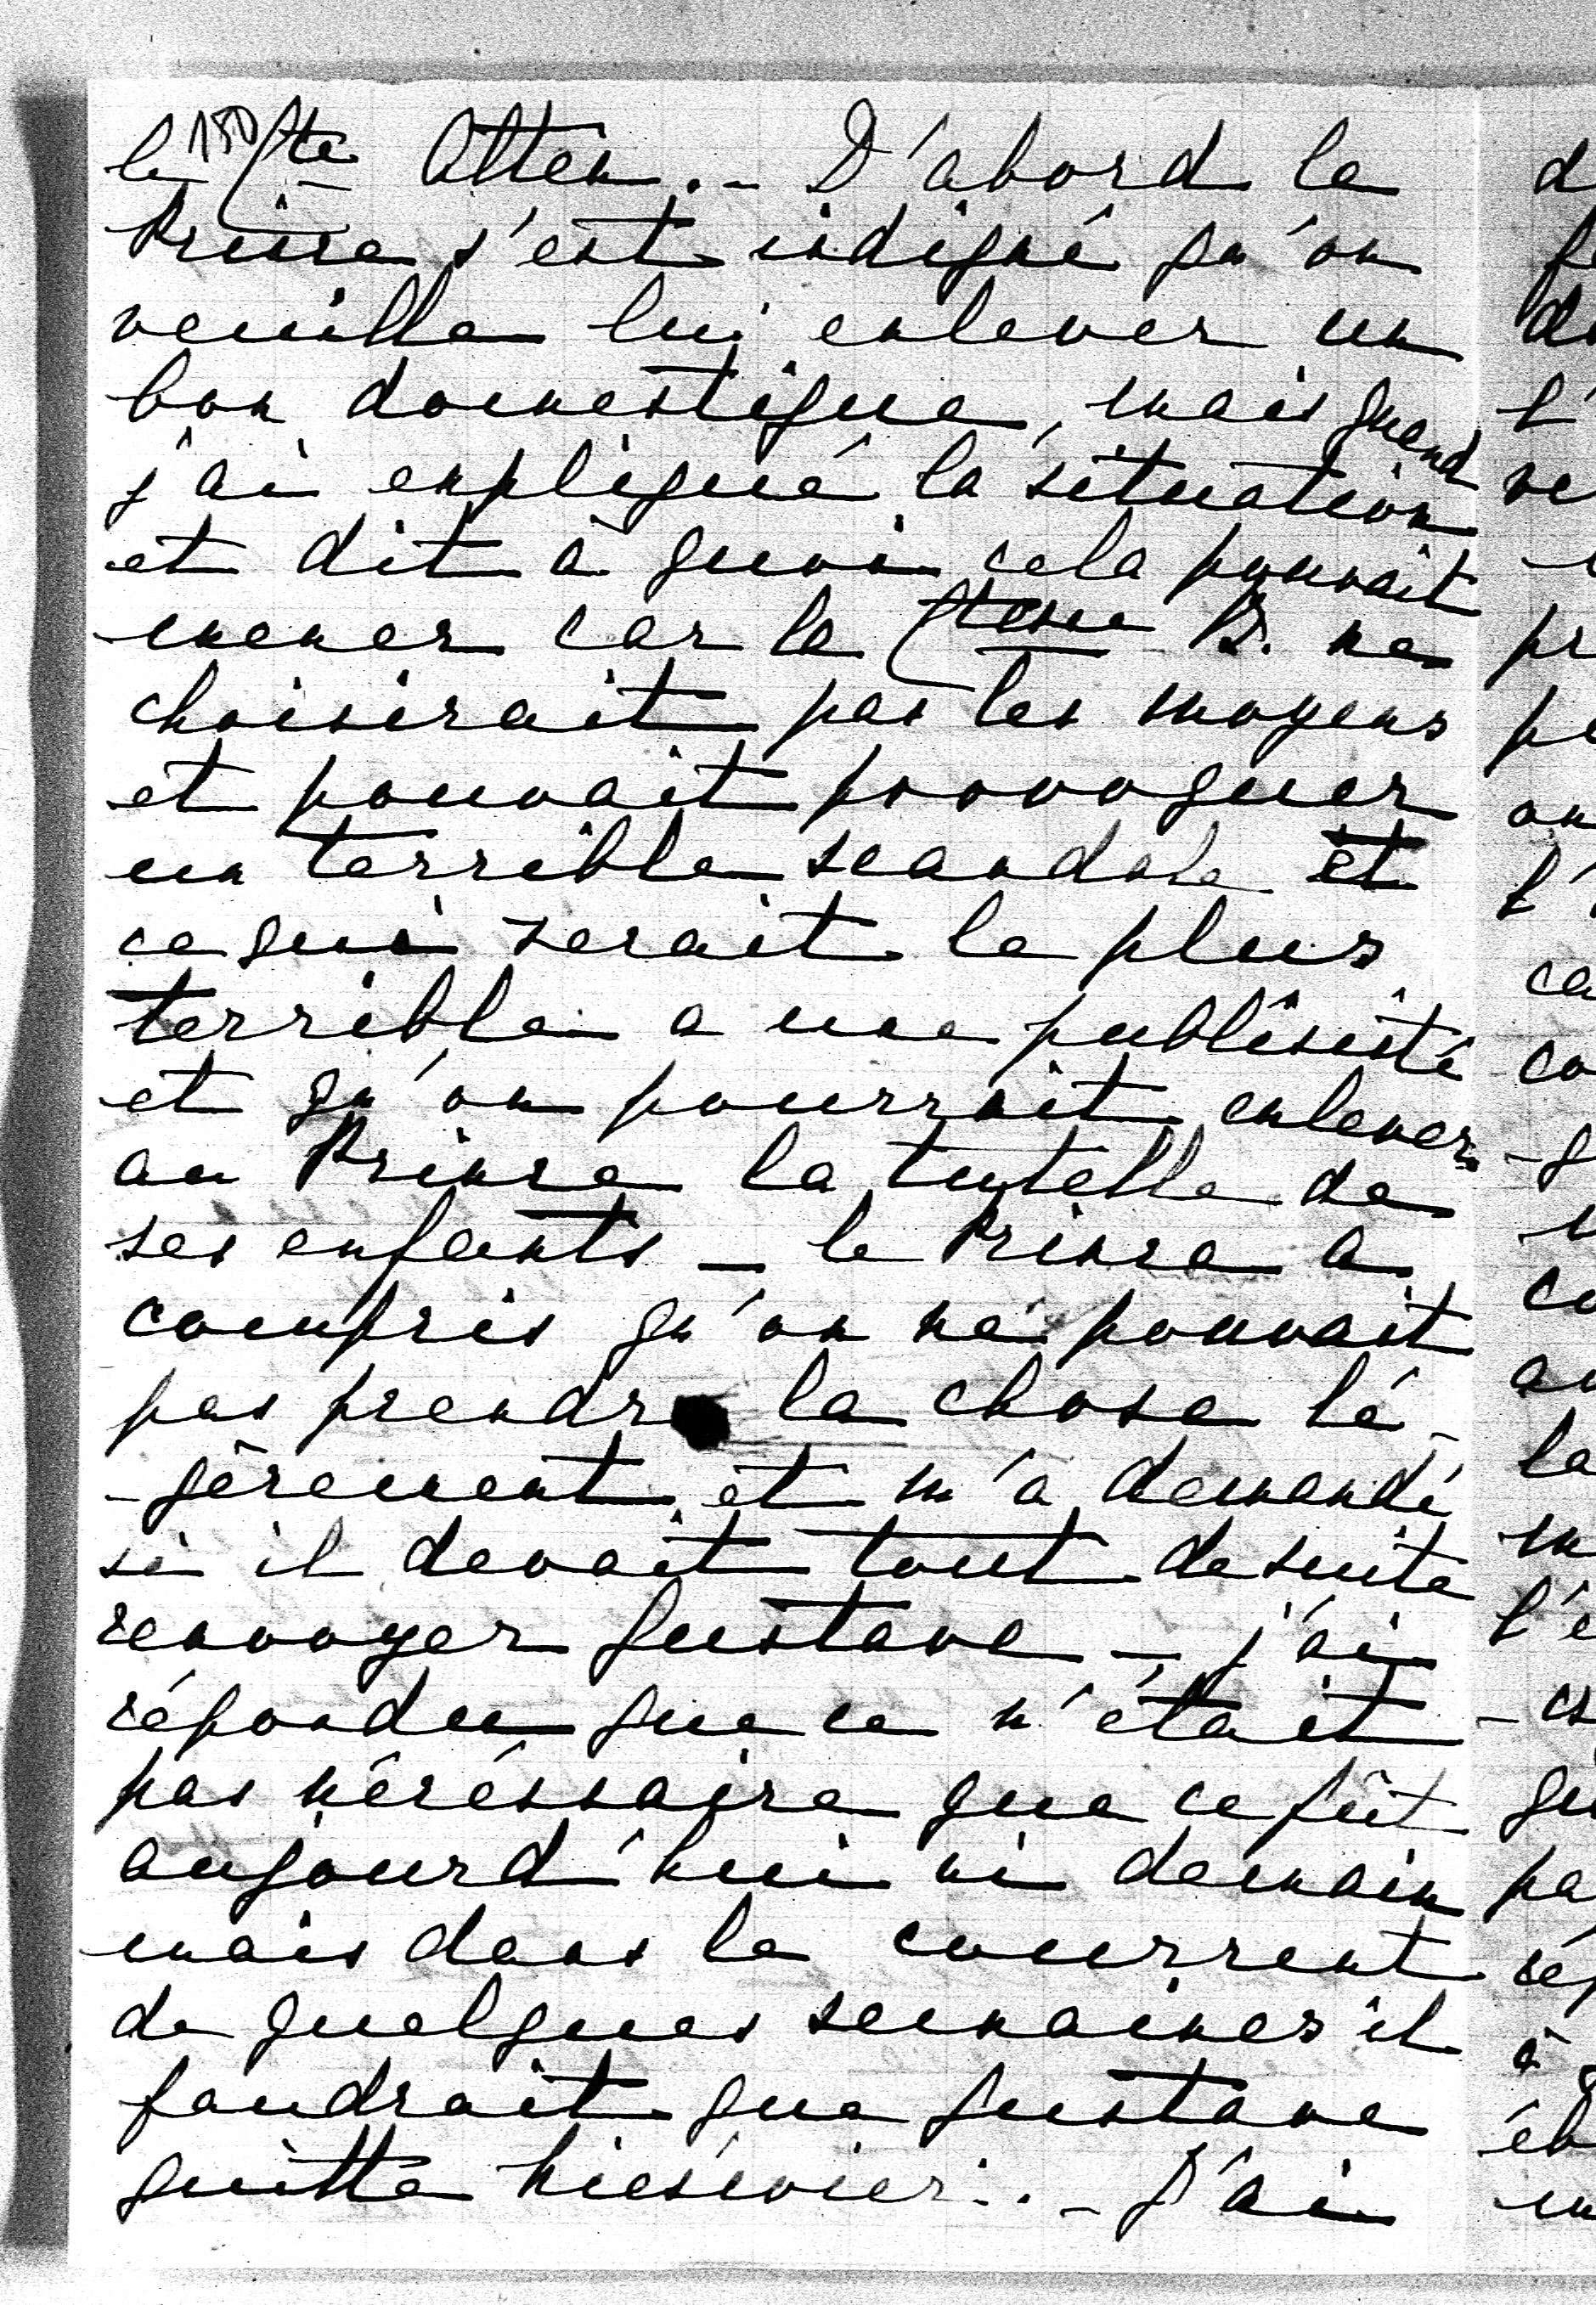 150
le Cte Atten. - D'abord le
Prince s'est indigné qu'on
veuille lui enlever un
bon domestique, mais quand
j'ai expliqué la situation
et dit à quoi cela pouvait
mener car la Ctesse B. ne
choisirait pas les moyens
et pouvait provoquer
un terrible scandale et
ce qui serait le plus
terrible a une publisité
et qu'on pourrait enlever
au Prince la tutelle de
ses enfants - le Prince a
compris qu'on ne pouvait
pas prendre la chose lé-
-gèrement et m'a demandé
si il devait tout de suite
renvoyer Gustave - j'ai
répondu que ce n'était
pas nécéssaire que ce fût
aujourd'hui ni demain
mais dans le courrent
de quelques semaines il
faudrait que Gustave
quitte . - J'ai